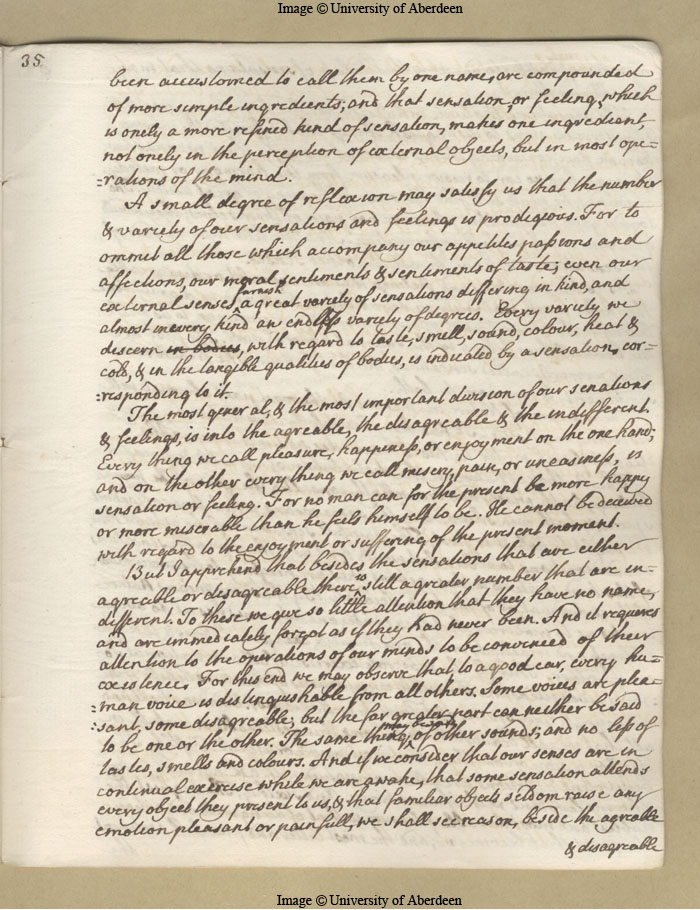 Image © University of Aberdeen
35
been accustomed to call them by one name, are compounded
of more simple ingredients; and that sensation, or feeling, which
is onely a more refined kind of sensation, makes one ingredient,
not onely in the perception of external objects, but in most ope=
=rations of the mind.
A small degree of reflexion may satisfy us that the number
& variety of our sensations and feelings is prodigious. For to
ommit all those which accompany our appetites passions and
affections, our moral sentiments & sentiments of taste; even our
furnish
external senses, a great variety of sensations differing in kind, and
almost in every kind an endless variety of degrees. Every variety we
discern in bodies, with regard to taste, smell, sound, colour, heat &
cold, & in the tangible qualities of bodies, is indicated by a sensation, cor=
=responding to it.
The most general, & the most important division of our sensations
& feelings, is into the agreable, the disagreable & the indifferent.
Every thing we call pleasure, happiness, or enjoyment on the one hand;
and on the other every thing we call misery, pain, or uneasiness, is
sensation or feeling. For no man can for the present be more happy
or more miserable than he feels himself to be. He cannot be deceived
with regard to the enjoyment or suffering of the present moment.
But I apprehend that besides the sensations that are either
is
agreable or disagreable there still a greater number that are in=
different. To these we give so little attention that they have no name,
and are immediately forgot as if they had never been. And it requires
attention to the operations of our minds to be convinced of their
existence. For this end we may observe that to a good ear, every hu=
=man voice is distinguishable from all others. Some voices are plea=
=sant, some disagreable; but the far greater part can neither be said
may be said
to be one or the other. The same thing of other sounds; and no less of
tastes, smells and colours. And if we consider that our senses are in
continual exercise while we are awake, that some sensation attends
every object they present to us, & that familiar objects seldom raise any
emotion pleasant or painfull, we shall see reason, beside the agreable
& disagreable
Image © University of Aberdeen